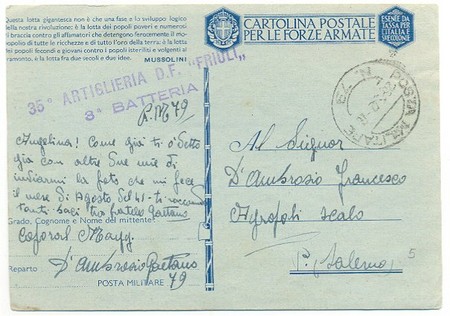 Questa lotta gigantesca non è che una fase e lo sviluppo logico
della nostra rivoluzione; è la lotta dei popoli poveri e numerosi
di braccia contro gli affamatori che detengono ferocemente il mono-
polio di tutte le ricchezze e di tutto l'oro della terra; è la lotta
dei popoli fecondi e giovani contro i popoli isteriliti e volgenti al
tramonto, è la lotta fra due secoli e due idee.
MUSSOLINI
35° ARTIGLIERIA D.F. "FRIULI"
8ª BATTERIA
P.M. 79
Angelina! Come già ti ò detto
già con altre mie di
inviarmi la foto che mi fece
il mese di Agosto del 41 - ti
tanti baci tuo fratello Gaetano
Grado, Cognome e Nome del mittente:
Caporal Magg.
D'Ambrosio Gaetano
Reparto
POSTA MILITARE 79
CARTOLINA POSTALE
PER LE FORZE ARMATE
ESENTE DA
TASSA PER
L'ITALIA E
POSTA MILITARE N. 79
Al Signor
D'Ambrosio Francesco
Agropoli scalo
P. (Salerno)
5